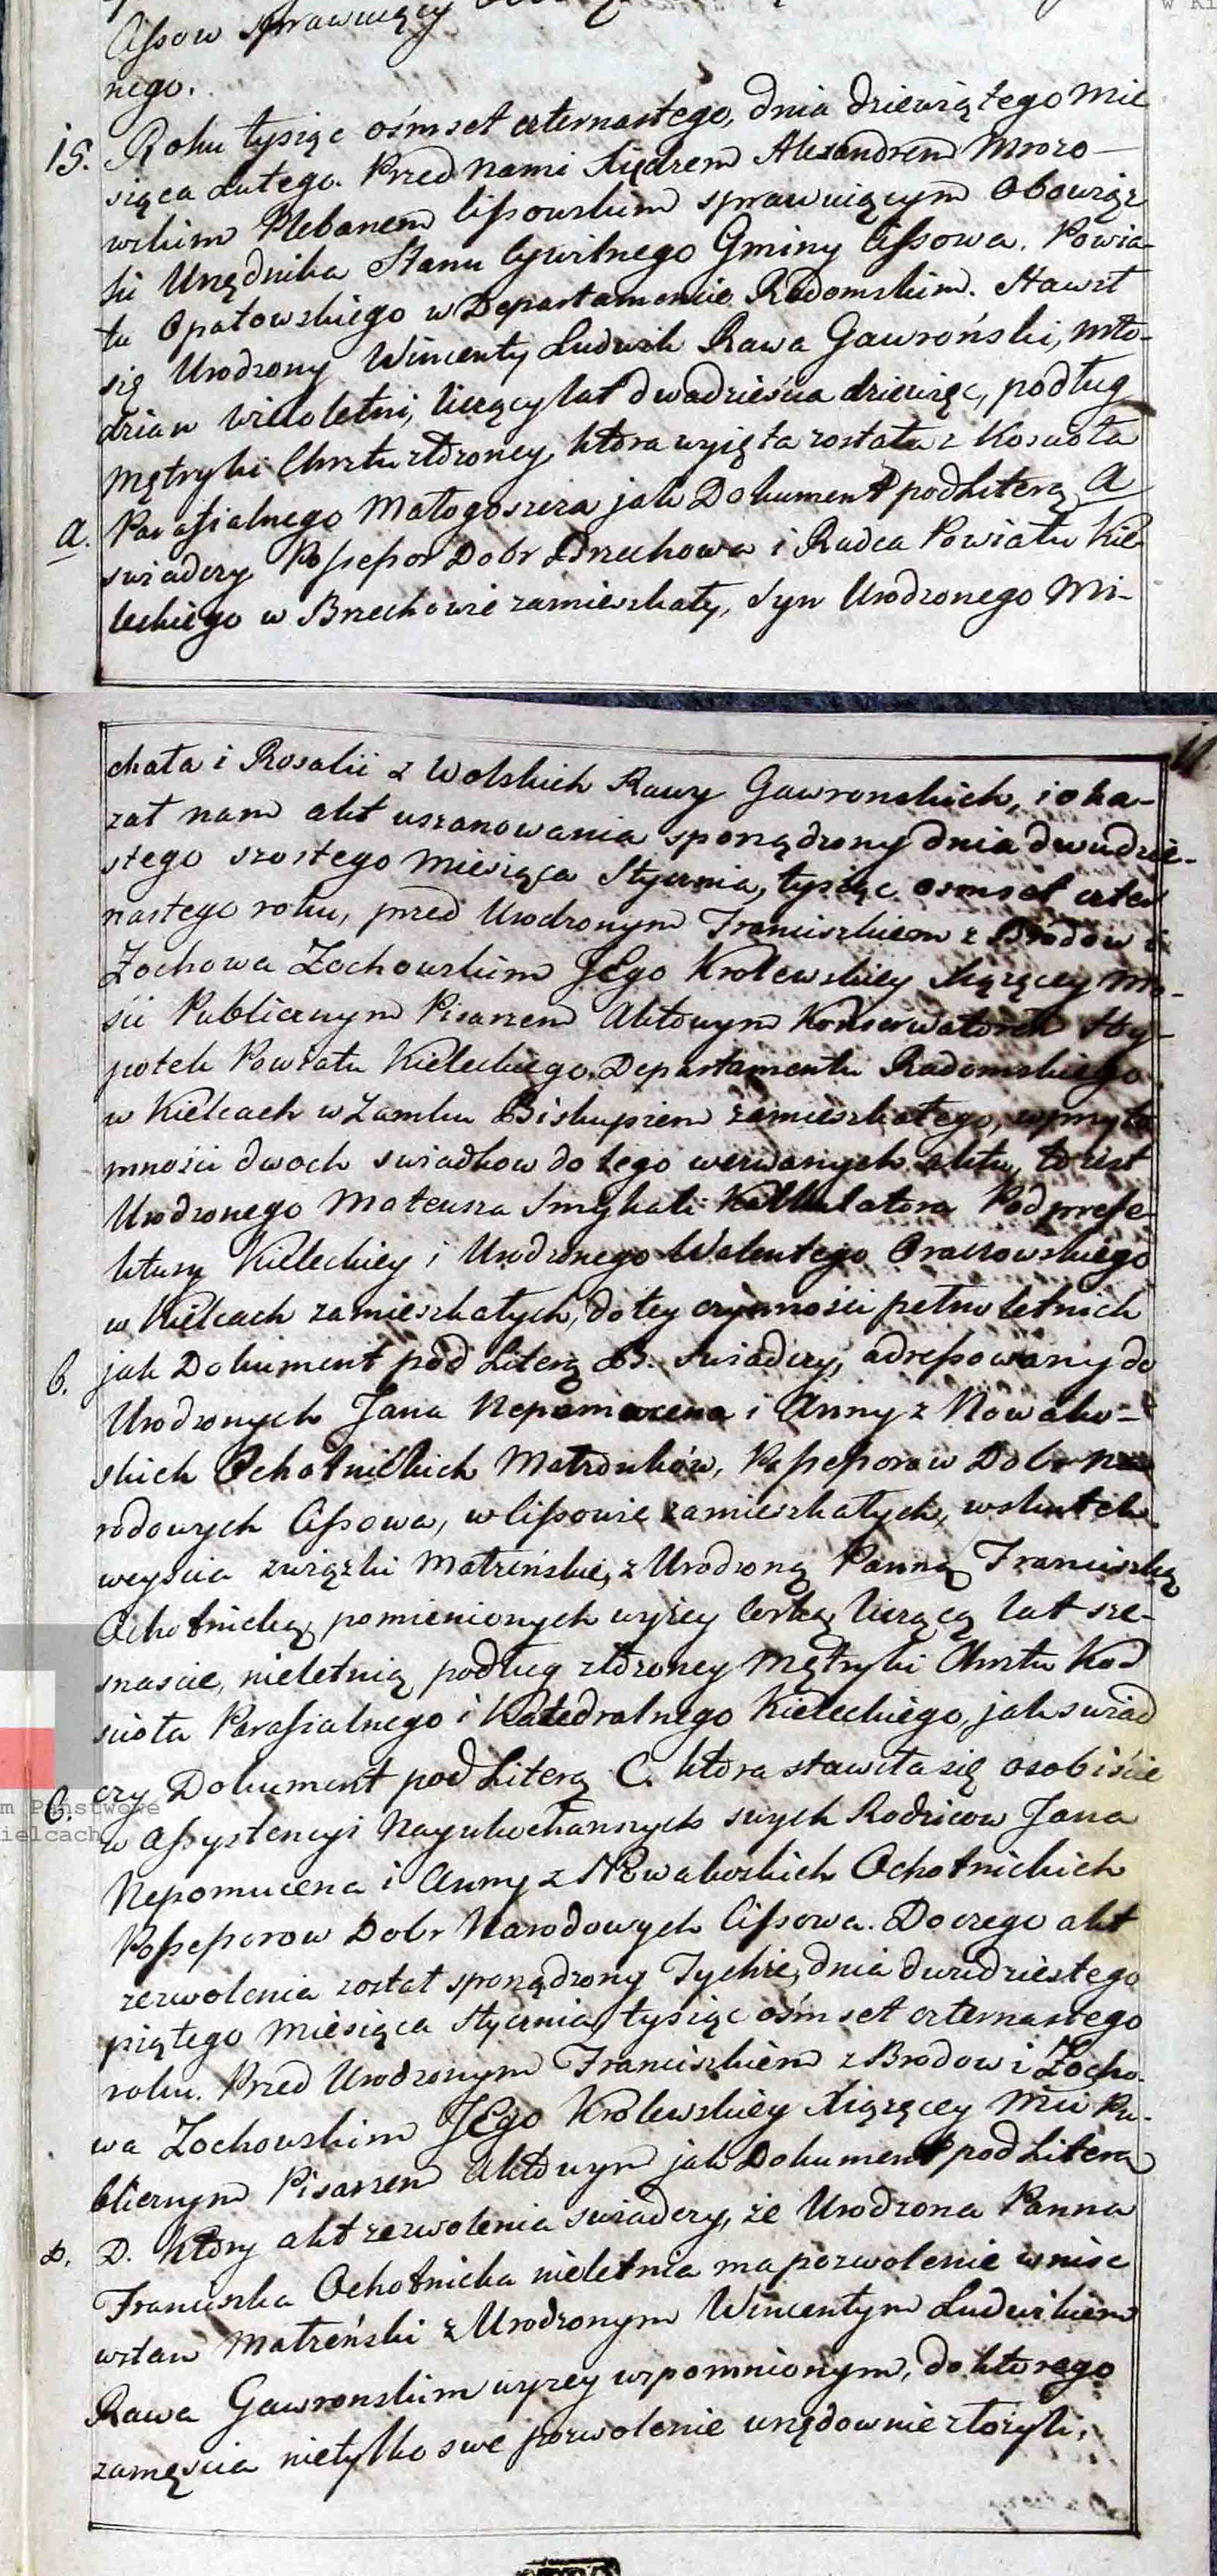 Cissow sprawuiący
nego.
15. Roku tysiąc ośmset czternastego, dnia dziewiątego Mie
siąca Lutego. Przed Nami Xiędzem Alexandrem Mrozo-
wskim Plebanem Cissowskim sprawuiącym Obowiąz
ki Urzędnika Stanu Cywilnego Gminy Cissowa. Powia-
tu Opatowskiego w Departamencie Radomskim. Stawił
się Urodzony Wincenty Ludwik Rawa Gawroński, Mło-
dzian wieloletni, liczący lat dwadzieścia dziewięc, podług
Mętryki Chrztu złożoney, ktora wyięta została z Koscioła
a. Parafialnego Małogoszcza jak Dokument pod Literą a
swiadczy Possessor Dobr Brzechowa i Radca Powiatu Kie
leckiego w Brzechowie zamieszkały, Syn Urodzonego Mi-
chała i Rosalii z Wolskich Rawy Gawronskich, i oka-
zał nam akt uszanowania sporządzony dnia dwudzie-
stego szostego Miesiąca Stycznia, tysiąc osmset czter
nastego roku, przed Urodzonym Franciszkiem z Brodow i
Żochowa Żochowskim JEgo Krolewskiey Xiążęcey Mo-
sci Publicznym Pisarzem Aktowym Konserwatorem Hy-
potek Powiatu Kieleckiego, Departamentu Radomskiego
w Kielcach w Zamku Biskupiem zamieszkałego, w przyto
mności dwoch swiadkow do tego wezwanych aktu, to iest
Urodzonego Mateusza Smykali Kalkulatora Podprefe-
ktury Kieleckiey i Urodzonego Walentego Oraczowskiego
w Kielcach zamieszkałych, do tey czynności pełnoletnich
b. jak Dokument pod Literą B. swiadczy, adressowany do
Urodzonych Jana Nepomucena i Anny z Nowako-
skich Ochotnickich Małżonków, Possessorow Dobr Na
rodowych Cissowa, w Cissowie zamieszkałych, w skutek
weyscia związki Małżeńskie, z Urodzoną Panną Franciszką
Ochotnicką, pomienionych wyżey Corką, liczącą lat sze-
snascie, nieletnią podług złożoney Mętryki Chrztu Koś
cioła Parafialnego i Katedralnego Kieleckiego, jak swiad
C. czy Dokument pod Literą C. ktora stawiła się osobiście
w Assystencyi Nayukochannych swych Rodzicow Jana
Nepomucena i Anny z Nowakoskich Ochotnickich
Possessorow Dobr Narodowych Cissowa. Do czego akt
zezwolenia został sporządzony Tychże, dnia dwudziestego
piątego Miesiąca Stycznia, tysiąc ośmset czternastego
roku. Przed Urodzonym Franciszkiem z Brodow i Żocho-
wa Żochowskim JEgo Krolewskiey Xiążęcey Mci Pu-
blicznym Pisarzem Aktowym jak Dokument pod Literą
D. D. Ktory akt zezwolenia swiadczy, że Urodzona Panna
Franciszka Ochotnicka nieletnia ma pozwolenie wniść
w stan Małżeński z Urodzonym Wincentym Ludwikiem
Rawa Gawronskim wyżey wzpomnionym, do ktorego
zamęscia nietylko swe pozwolenie urzędownie złożyli,